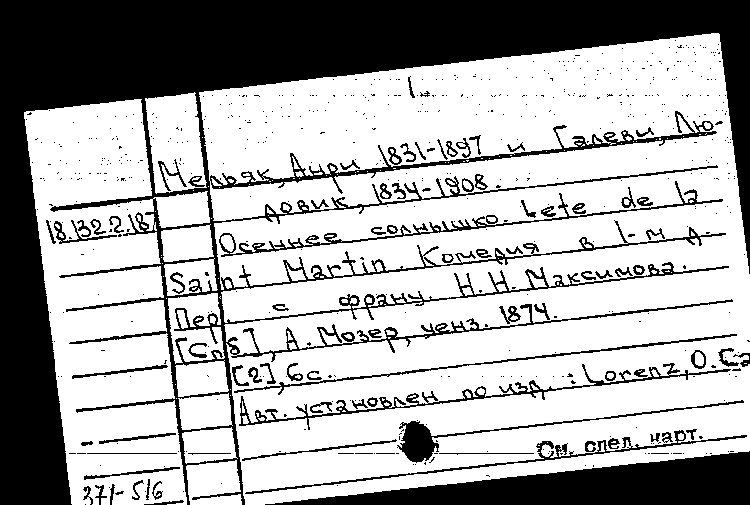 1.
Мельяк, Анри, 1831-1897 и Галеви, Лю-
довик, 1834-1908.
18.132.2.187
Осеннее солнышко. Lete de la
Saint Martin. Комедия в 1-м д.
Пер. с франц. Н.Н. Максимова.
[Спб], А. Мозер, ценз. 1874.
[2], 6 с.
Авт. установлен по изд.: Lorenz, O. Ca
См. след. карт.
371-516